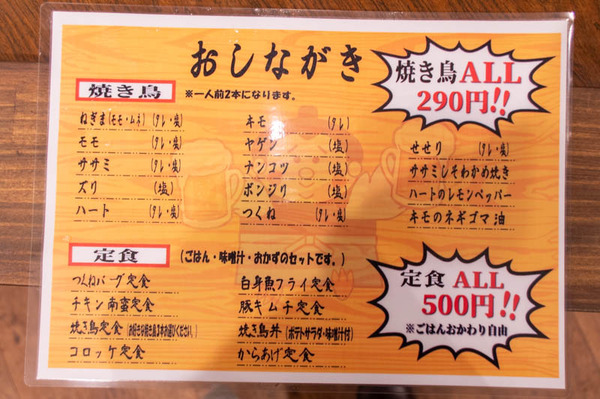 おしながき
焼き鳥ALL
290円!!
焼き鳥
※一人前2本になります。
ねぎま(モモ・ムネ) (タレ・塩)
モモ (タレ・塩)
ササミ (タレ・塩)
ズリ (塩)
ハート (タレ・塩)
キモ (タレ)
ヤゲン (塩)
ナンコツ (塩)
ボンジリ (塩)
つくね (タレ・塩)
せせり (タレ・塩)
ササミしそわかめ焼き
ハートのレモンペッパー
キモのネギゴマ油
定食
(ごはん・味噌汁・おかずのセットです。)
つくねバーグ定食
チキン南蛮定食
焼き鳥定食(お好きな焼き鳥3本お選びください。)
コロッケ定食
白身魚フライ定食
豚キムチ定食
焼き鳥丼(ポテトサラダ・味噌汁付)
からあげ定食
定食 ALL
500円!!
※ごはんおかわり自由